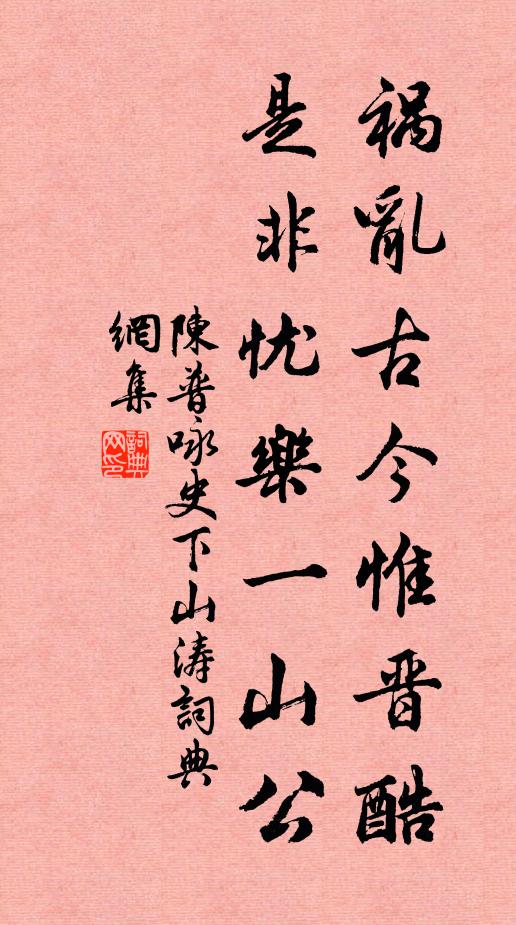 祸亂古今惟晋酷
是非忧樂一山公
陳普咏史下山涛詞典
網集
詞典网印